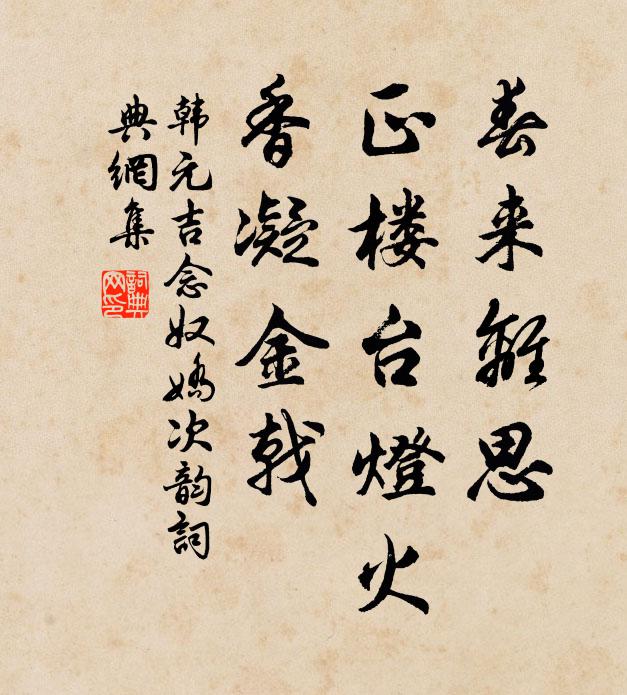 春来離思
正楼台燈火
香凝金戟
韩元吉念奴嬌次韵詞
典網集
詞典网印